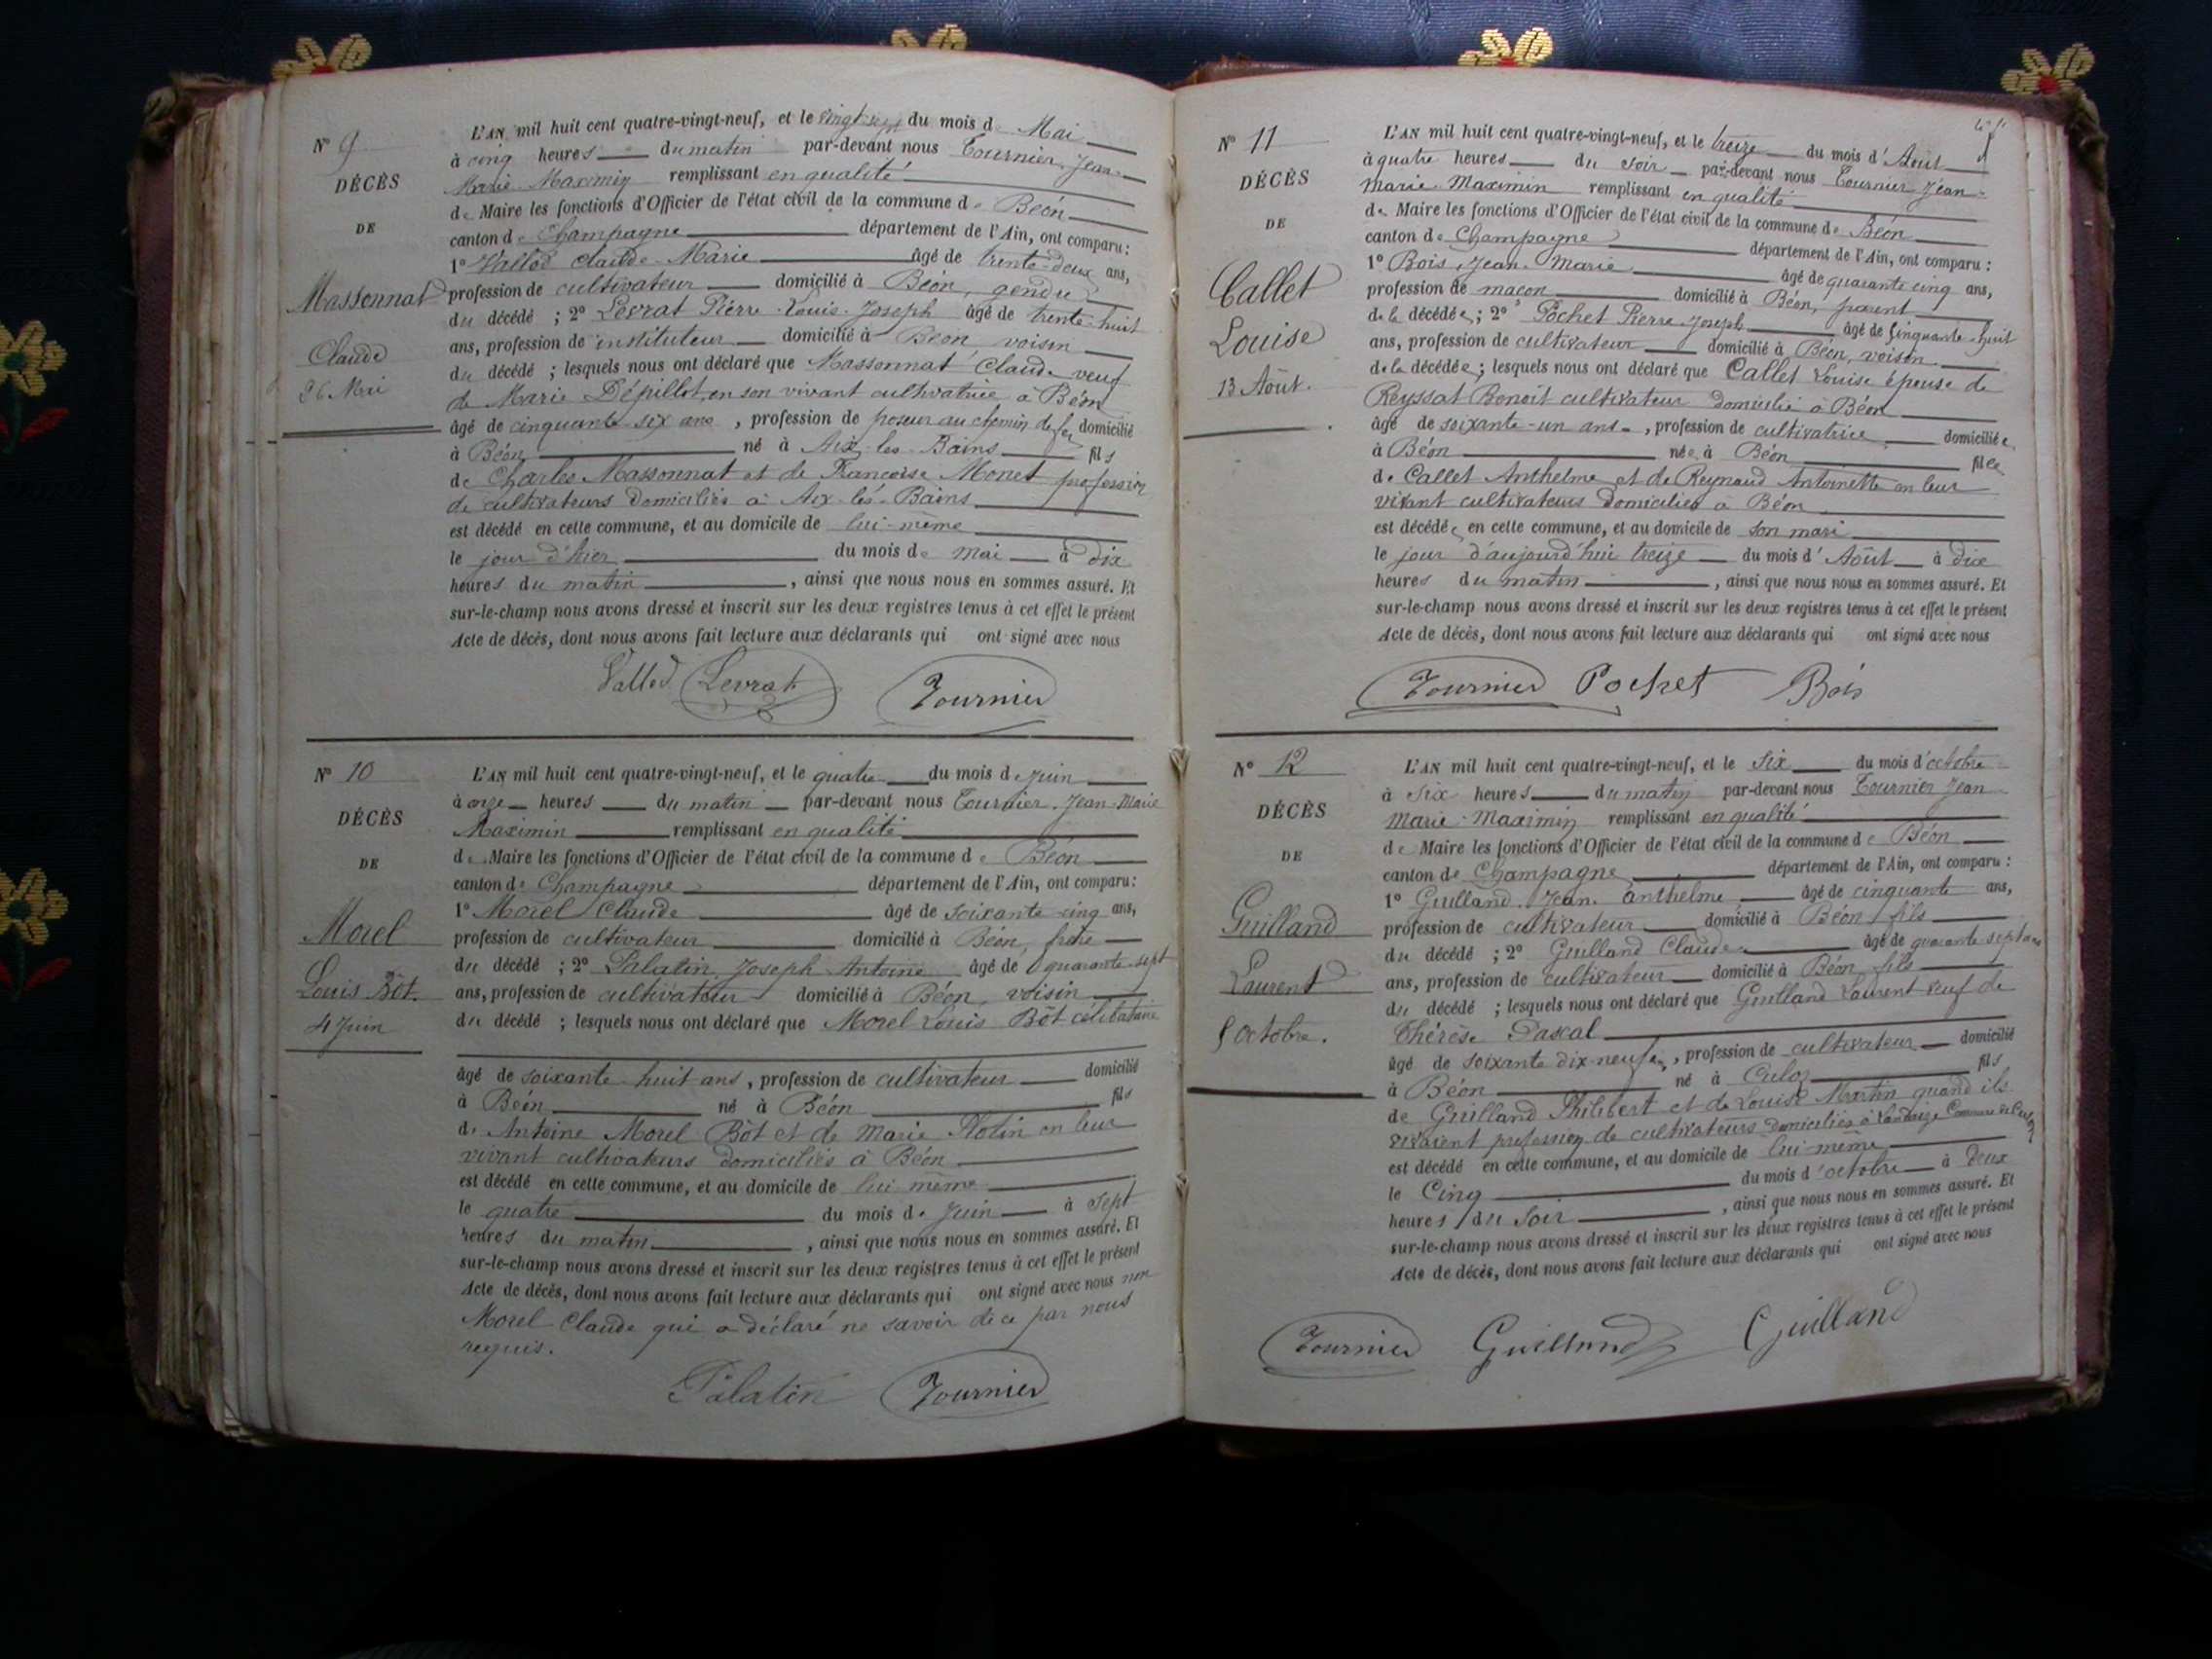 N° 9
DÉCÈS
DE
Massonnat
Claude
26 Mai
L'AN mil huit cent quatre-vingt-neuf, et le vingt sept du mois de Mai
à cinq heures du matin par-devant nous Tournier Jean-
Marie Maximin remplissant en qualité
de Maire les fonctions d'Officier de l'état civil de la commune de Béon
canton de Champagne département de l'Ain, ont comparu :
1° Vallod Claude-Marie âgé de trente-deux ans,
profession de cultivateur domicilié à Béon, gendre
du décédé ; 2° Levrat Pierre-Louis-Joseph âgé de trente-huit
ans, profession de instituteur domicilié à Béon voisin
du décédé ; lesquels nous ont déclaré que Massonnat Claude veuf
de Marie Dépillot en son vivant cultivatrice à Béon
âgé de cinquante-six ans, profession de poseur au chemin de fer domicilié
à Béon né à Aix-les-Bains fils
de Charles Massonnat et de Francoise Monet profession
de cultivateurs domiciliés à Aix-lés-Bains
est décédé en cette commune, et au domicile de lui-même
le jour d'hier du mois de mai à dix
heures du matin, ainsi que nous nous en sommes assuré. Et
sur-le-champ nous avons dressé et inscrit sur les deux registres tenus à cet effet le présent
Acte de décès, dont nous avons fait lecture aux déclarants qui ont signé avec nous
Vallod Levrat Tournier
N° 10
DÉCÈS
DE
Morel
Louis Bôt.
4 Juin
L'AN mil huit cent quatre-vingt-neuf, et le quatre du mois de Juin
à onze heures du matin par-devant nous Tournier Jean-Marie
Maximin remplissant en qualité
de Maire les fonctions d'Officier de l'état civil de la commune de Béon
canton de Champagne département de l'Ain, ont comparu :
1° Morel Claude âgé de soixante-cinq ans,
profession de cultivateur domicilié à Béon, frère
du décédé ; 2° Palatin Joseph Antoine âgé de quarante-sept
ans, profession de cultivateur domicilié à Béon, voisin
du décédé ; lesquels nous ont déclaré que Morel Louis Bôt célibataire
âgé de soixante-huit ans, profession de cultivateur domicilié
à Béon né à Béon fils
de Antoine Morel Bôt et de Marie Plotin en leur
vivant cultivateurs domiciliés à Béon
est décédé en cette commune, et au domicile de lui même
le quatre du mois de Juin à Sept
heures du matin, ainsi que nous nous en sommes assuré. Et
sur-le-champ nous avons dressé et inscrit sur les deux registres tenus à cet effet le présent
Acte de décès, dont nous avons fait lecture aux déclarants qui ont signé avec nous non
Morel Claude qui a déclaré ne savoir de ce par nous
requis.
Palatin Tournier
N° 11
DÉCÈS
DE
Callet
Louise
13 Août.
L'AN mil huit cent quatre-vingt-neuf, et le treize du mois d'Août
à quatre heures du soir par-devant nous Tournier Jean-
Marie-Maximin remplissant en qualité
de Maire les fonctions d'Officier de l'état civil de la commune de Béon
canton de Champagne département de l'Ain, ont comparu :
1° Bois Jean-Marie âgé de quarante cinq ans,
profession de maçon domicilié à Béon, parent
de la décédée ; 2° Pochet Pierre-Joseph âgé de Cinquante-huit
ans, profession de cultivateur domicilié à Béon, voisin
de la décédée ; lesquels nous ont déclaré que Callet Louise épouse de
Reyssat Benoit cultivateur domicilié à Béon
âgé de soixante-un ans, profession de cultivatrice domiciliée
à Béon née à Béon fille
de Callet Anthelme et de Reynaud Antoinette en leur
vivant cultivateurs domiciliés à Béon
est décédée en cette commune, et au domicile de son mari
le jour d'aujourd'hui treize du mois d'Août à dix
heures du matin, ainsi que nous nous en sommes assuré. Et
sur-le-champ nous avons dressé et inscrit sur les deux registres tenus à cet effet le présent
Acte de décès, dont nous avons fait lecture aux déclarants qui ont signé avec nous
Tournier Pochet Bois
N° 12
DÉCÈS
DE
Guilland
Laurent
5 Octobre.
L'AN mil huit cent quatre-vingt-neuf, et le Six du mois d'octobre
à Six heures du matin par-devant nous Tournier Jean
Marie-Maximin remplissant en qualité
de Maire les fonctions d'Officier de l'état civil de la commune de Béon
canton de Champagne département de l'Ain, ont comparu :
1° Guilland Jean-Anthelme âgé de cinquante ans,
profession de cultivateur domicilié à Béon, fils
du décédé ; 2° Guilland Claude âgé de quarante sept ans
ans, profession de cultivateur domicilié à Béon fils
du décédé ; lesquels nous ont déclaré que Guilland Laurent veuf de
Thérèse Pascal
âgé de soixante dix-neuf, profession de cultivateur domicilié
à Béon né à Culoz fils
de Guilland Philibert et de Louise Martin quand ils
vivaient profession de cultivateurs domiciliés à Landaize Commune de Culoz
est décédé en cette commune, et au domicile de lui-même
le Cinq du mois d'octobre à Deux
heures du Soir, ainsi que nous nous en sommes assuré. Et
sur-le-champ nous avons dressé et inscrit sur les deux registres tenus à cet effet le présent
Acte de décès, dont nous avons fait lecture aux déclarants qui ont signé avec nous
Tournier Guilland Guilland